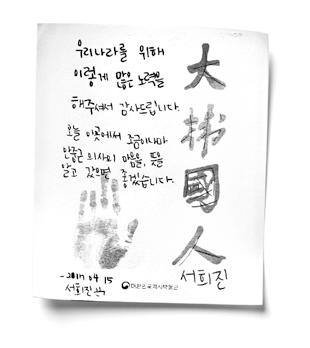 우리나라를 위해
이렇게 많은 노력을
해주셔서 감사드립니다.
오늘 이곳에서 조금이나마
안중근 의사의 마음을, 뜻을
알고 갔으면 좋겠습니다.
- 2017 04 15
서희진
대한민국역사박물관
大
韓
國
人
서희진